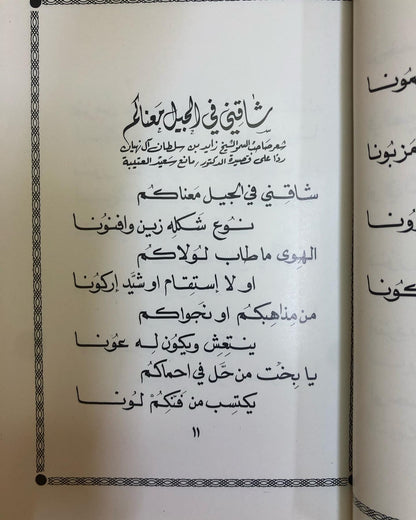 شاقني في الجيل معناكم
شعر صاحب السمو الشيخ زايد بن سلطان آل نهيان
ردا على قصيدة الدكتور/ مانع سعيد العتيبة
شاقني في الجيل مَعناكُم
نُوع شكله زين وافنُونا
الهوى ما طاب لولاكُم
او لا إستقام او شيَّد إركونا
من مذاهبكُم او نجواكُم
ينتعِش ويكون له عونا
يا بخت من حَل في احماكُم
يكتسِب من فَنّكُمْ لُونا
١١
مُونا
مزبُونا
رُونا
كُونا